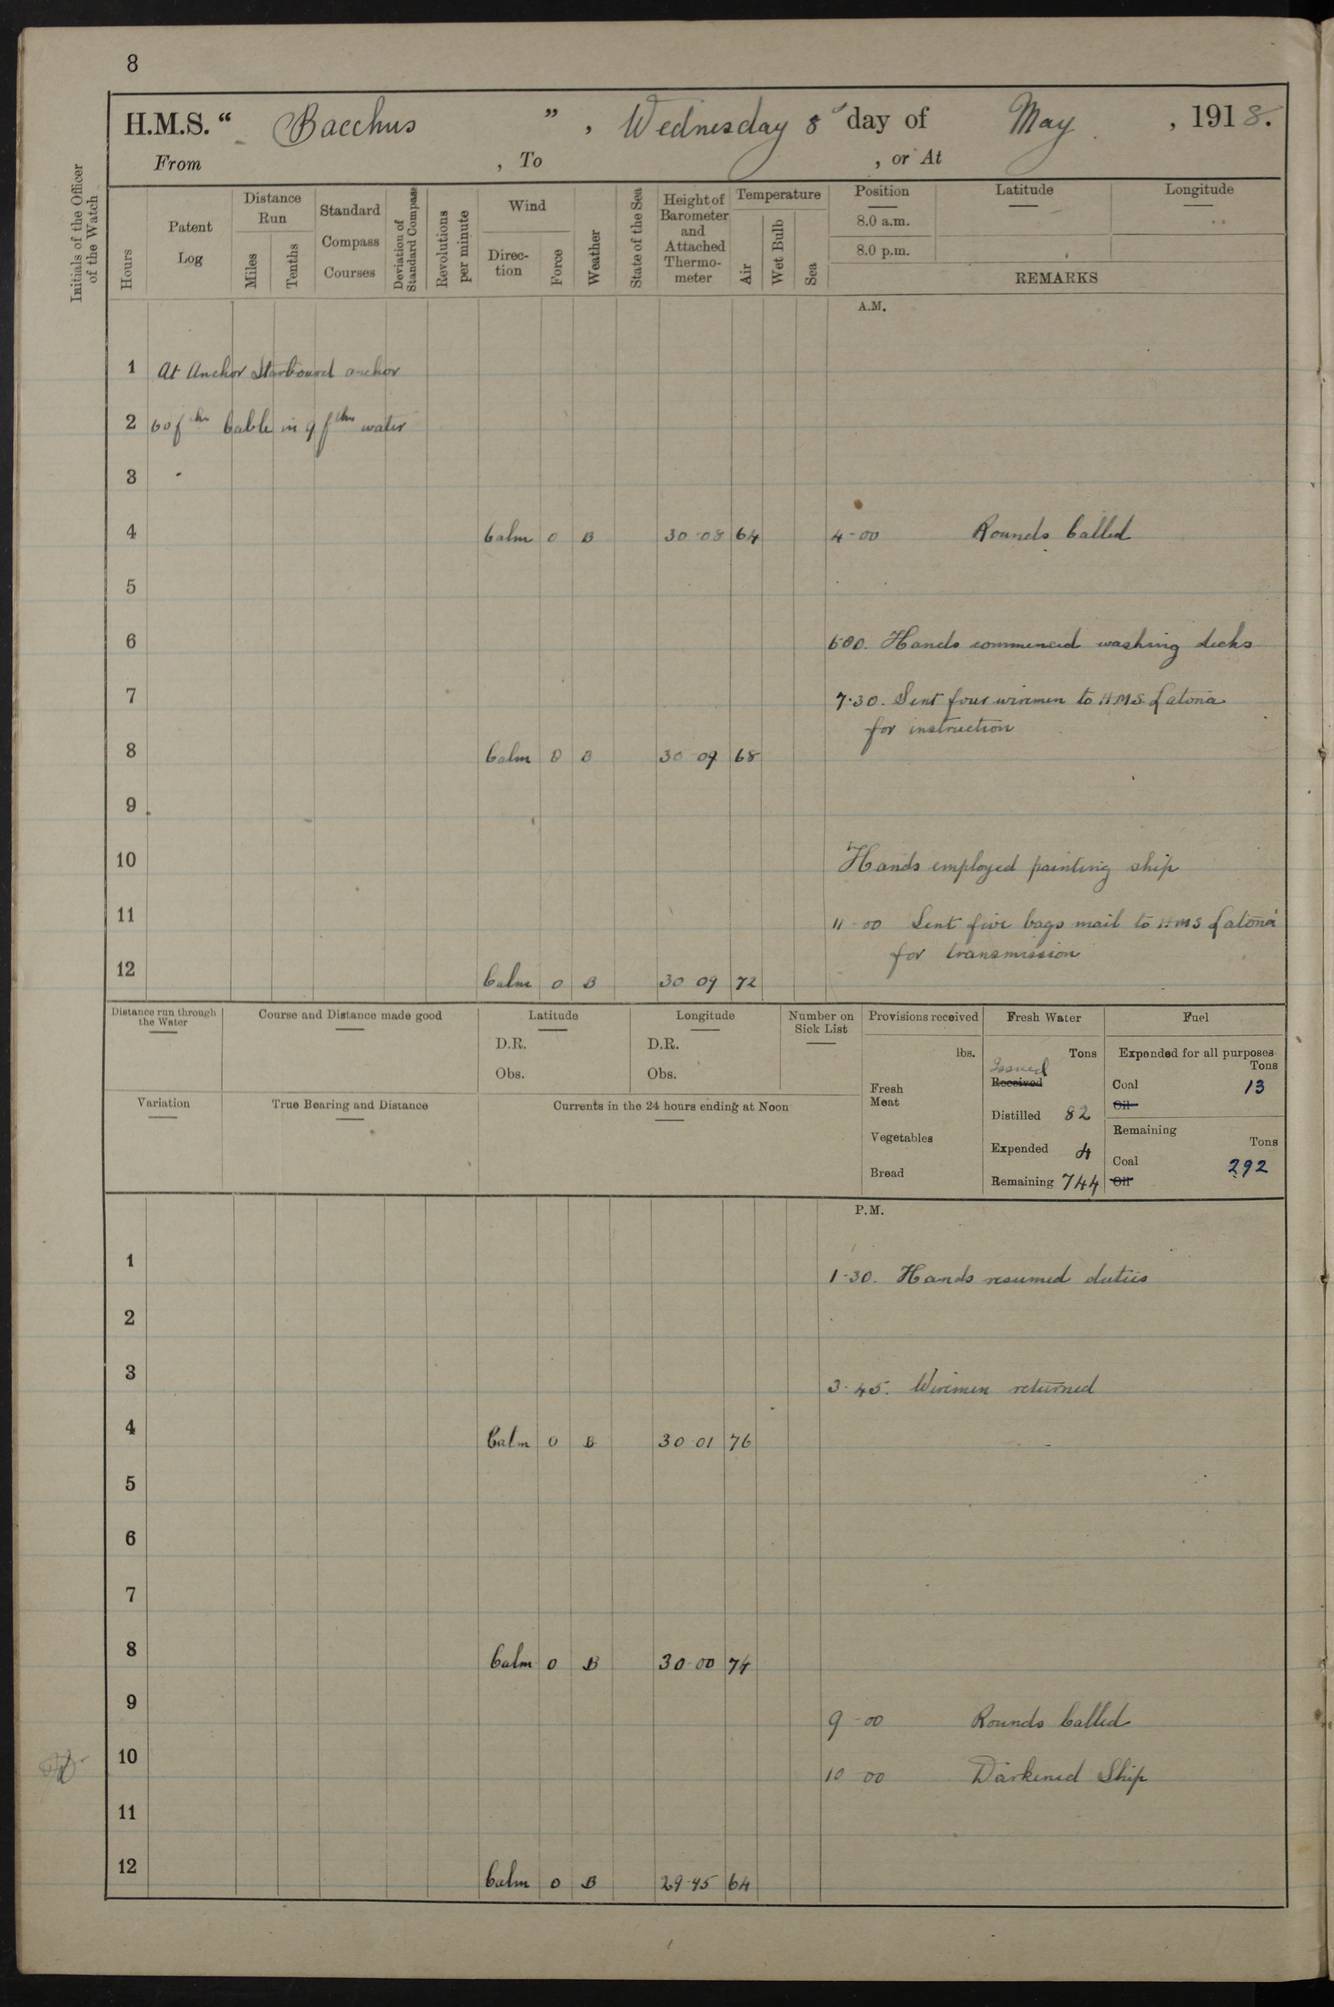 8
H.M.S. “ Bacchus ” , Wednesday 8th day of May , 1918.
From , To , or At
Initials of the Officer of the Watch
Hours
Patent Log
Distance Run
Miles
Tenths
Standard Compass Courses
Deviation of Standard Compass
Revolutions per minute
Wind
Direc- tion
Force
Weather
State of the Sea
Height of Barometer and Attached Thermo- meter
Temperature
Air
Wet Bulb
Sea
Position Latitude Longitude
8.0 a.m.
8.0 p.m.
REMARKS
A.M.
1 At Anchor Starboard anchor
2 60 fthm Cable in 9 fthms water
3
4 Calm 0 B 30·08 64 4-00 Rounds Called
5
6 6·00. Hands commenced washing decks
7 7·30. Sent four wiremen to H.M.S. Latona
for instruction
8 Calm 0 B 30 09 68
9
10 Hands employed painting ship
11 11-00 Sent five bags mail to HMS Latona
for transmission
12 Calm 0 B 30 09 72
Distance run through the Water
Course and Distance made good
Latitude
D.R.
Obs.
Longitude
D.R.
Obs.
Number on Sick List
Provisions received
lbs.
Fresh Meat
Vegetables
Bread
Fresh Water
Tons
Issued
Received
Distilled 82
Expended 4
Remaining 744
Fuel
Expended for all purposes
Tons
Coal 13
Oil
Remaining
Tons
Coal 292
Oil
Variation
True Bearing and Distance
Currents in the 24 hours ending at Noon
P.M.
1 1-30. Hands resumed duties
2
3 3-45. Wiremen returned
4 Calm 0 B 30 01 76
5
6
7
8 Calm 0 B 30-00 74
9 9-00 Rounds Called
10 10 00 Darkened Ship
11
12 Calm 0 B 29·95 64